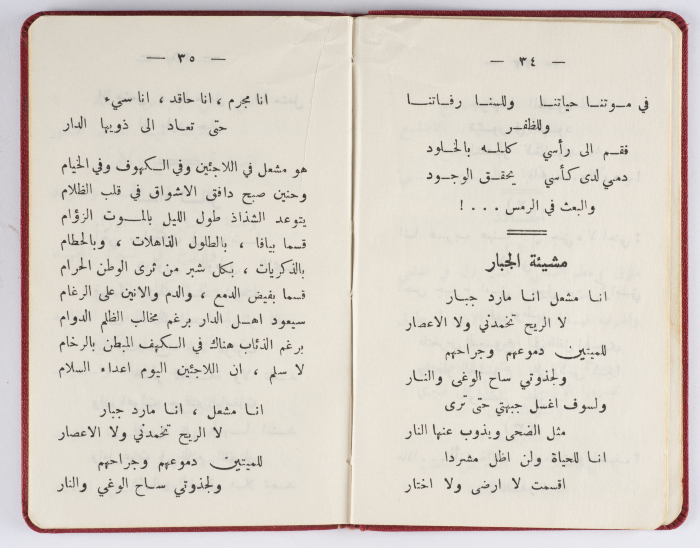 — ٣٤ —
في مـوتنـا حياتنـا وللمنـا رفـاتنـا
وللظفـر
فقـم الى رأسي كللـه بالخلـود
دمـي لدى كـأسي يحقـق الوجـود
والبعث في الرمس . . . !
مشيئة الجبار
انـا مشعل انـا مارد جبـار
لا الريح تخمدني ولا الاعصار
للميتين دموعهم وجراحهم
ولجذوتي ساح الوغى والنـار
ولسوف اغسل جبهتي حتى ترى
مثل الضحى ويذوب عنهـا النار
انـا للحياة ولن اظل مشردا
اقسمت لا ارضى ولا اختار
— ٣٥ —
انـا مجرم ، انـا حاقد ، انـا سيء
حتى تعـاد الى ذويهـا الدار
هو مشعل في اللاجئين وفي الكهوف وفي الخيام
وحنين صبح دافق الاشواق في قلب الظلام
يتوعد الشذاذ طول الليل بالمـوت الزؤام
قسما بيافا ، بالطلول الذاهلات ، وبالحطام
بالذكريات ، بكل شبر من ثرى الوطن الحرام
قسما بفيض الدمع ، والدم والانين على الرغام
سيعود اهـل الدار برغم مخالب الظلم الدوام
برغم الذئاب هناك في الكهف المبطن بالرخام
لا سلم ، ان اللاجئين اليوم اعداء السلام
انـا مشعل ، انـا مارد جبار
لا الريح تخمدني ولا الاعصار
للميتين دموعهم وجراحهم
ولجذوتي سـاح الوغي والنار